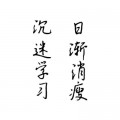 日渐消瘦
沉迷学习